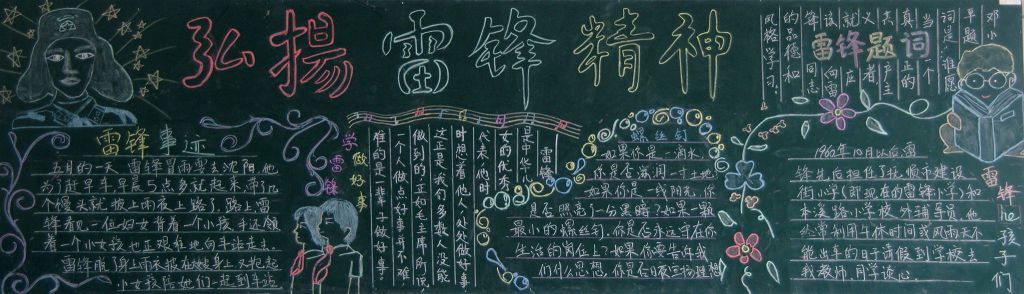 弘揚雷锋精神
雷锋事迹
五月的一天，雷锋冒雨要去沈阳，他
为了赶早车早晨5点多就起来，带了几
个馒头就披上雨衣上路了，路上，雷
锋看见一位妇女背着一个小孩，手还领
着一个小女孩也正艰难地向车站走去。
雷锋脱了身上雨衣披在她身上，又抱起
小女孩陪她们一起到车站
学雷锋
做好事
雷锋
是中华儿
女的优秀
代表，他时
时想着他人，处处做好事
过正是我们多数人没能
做到的，正如毛主席所说
一个人做点好事并不难，
难的是一辈子做好事！
螺丝钉
如果你是一滴水，
你是否滋润一寸土地，
如果你是一线阳光，你
是否照亮了一分黑暗？如果一颗
最小的螺丝钉，你是否永远守在你
生活的岗位上？如果你要告诉我
们什么思想，你是否日夜宣扬
雷锋题词
邓小
早题
词是：谁愿
当一个
真正的
共产主
义者
就应
该向雷
锋同志
的品德和
风格学习。
1960年10月以后，雷
锋先后担任了抚顺市建设
街小学（即现在的雷锋小学）和
本溪路小学校外辅导员。他
经常利用午休时间或风雨天不
能出车的日子请假到学校去
找教师、同学谈心
雷锋he孩子们